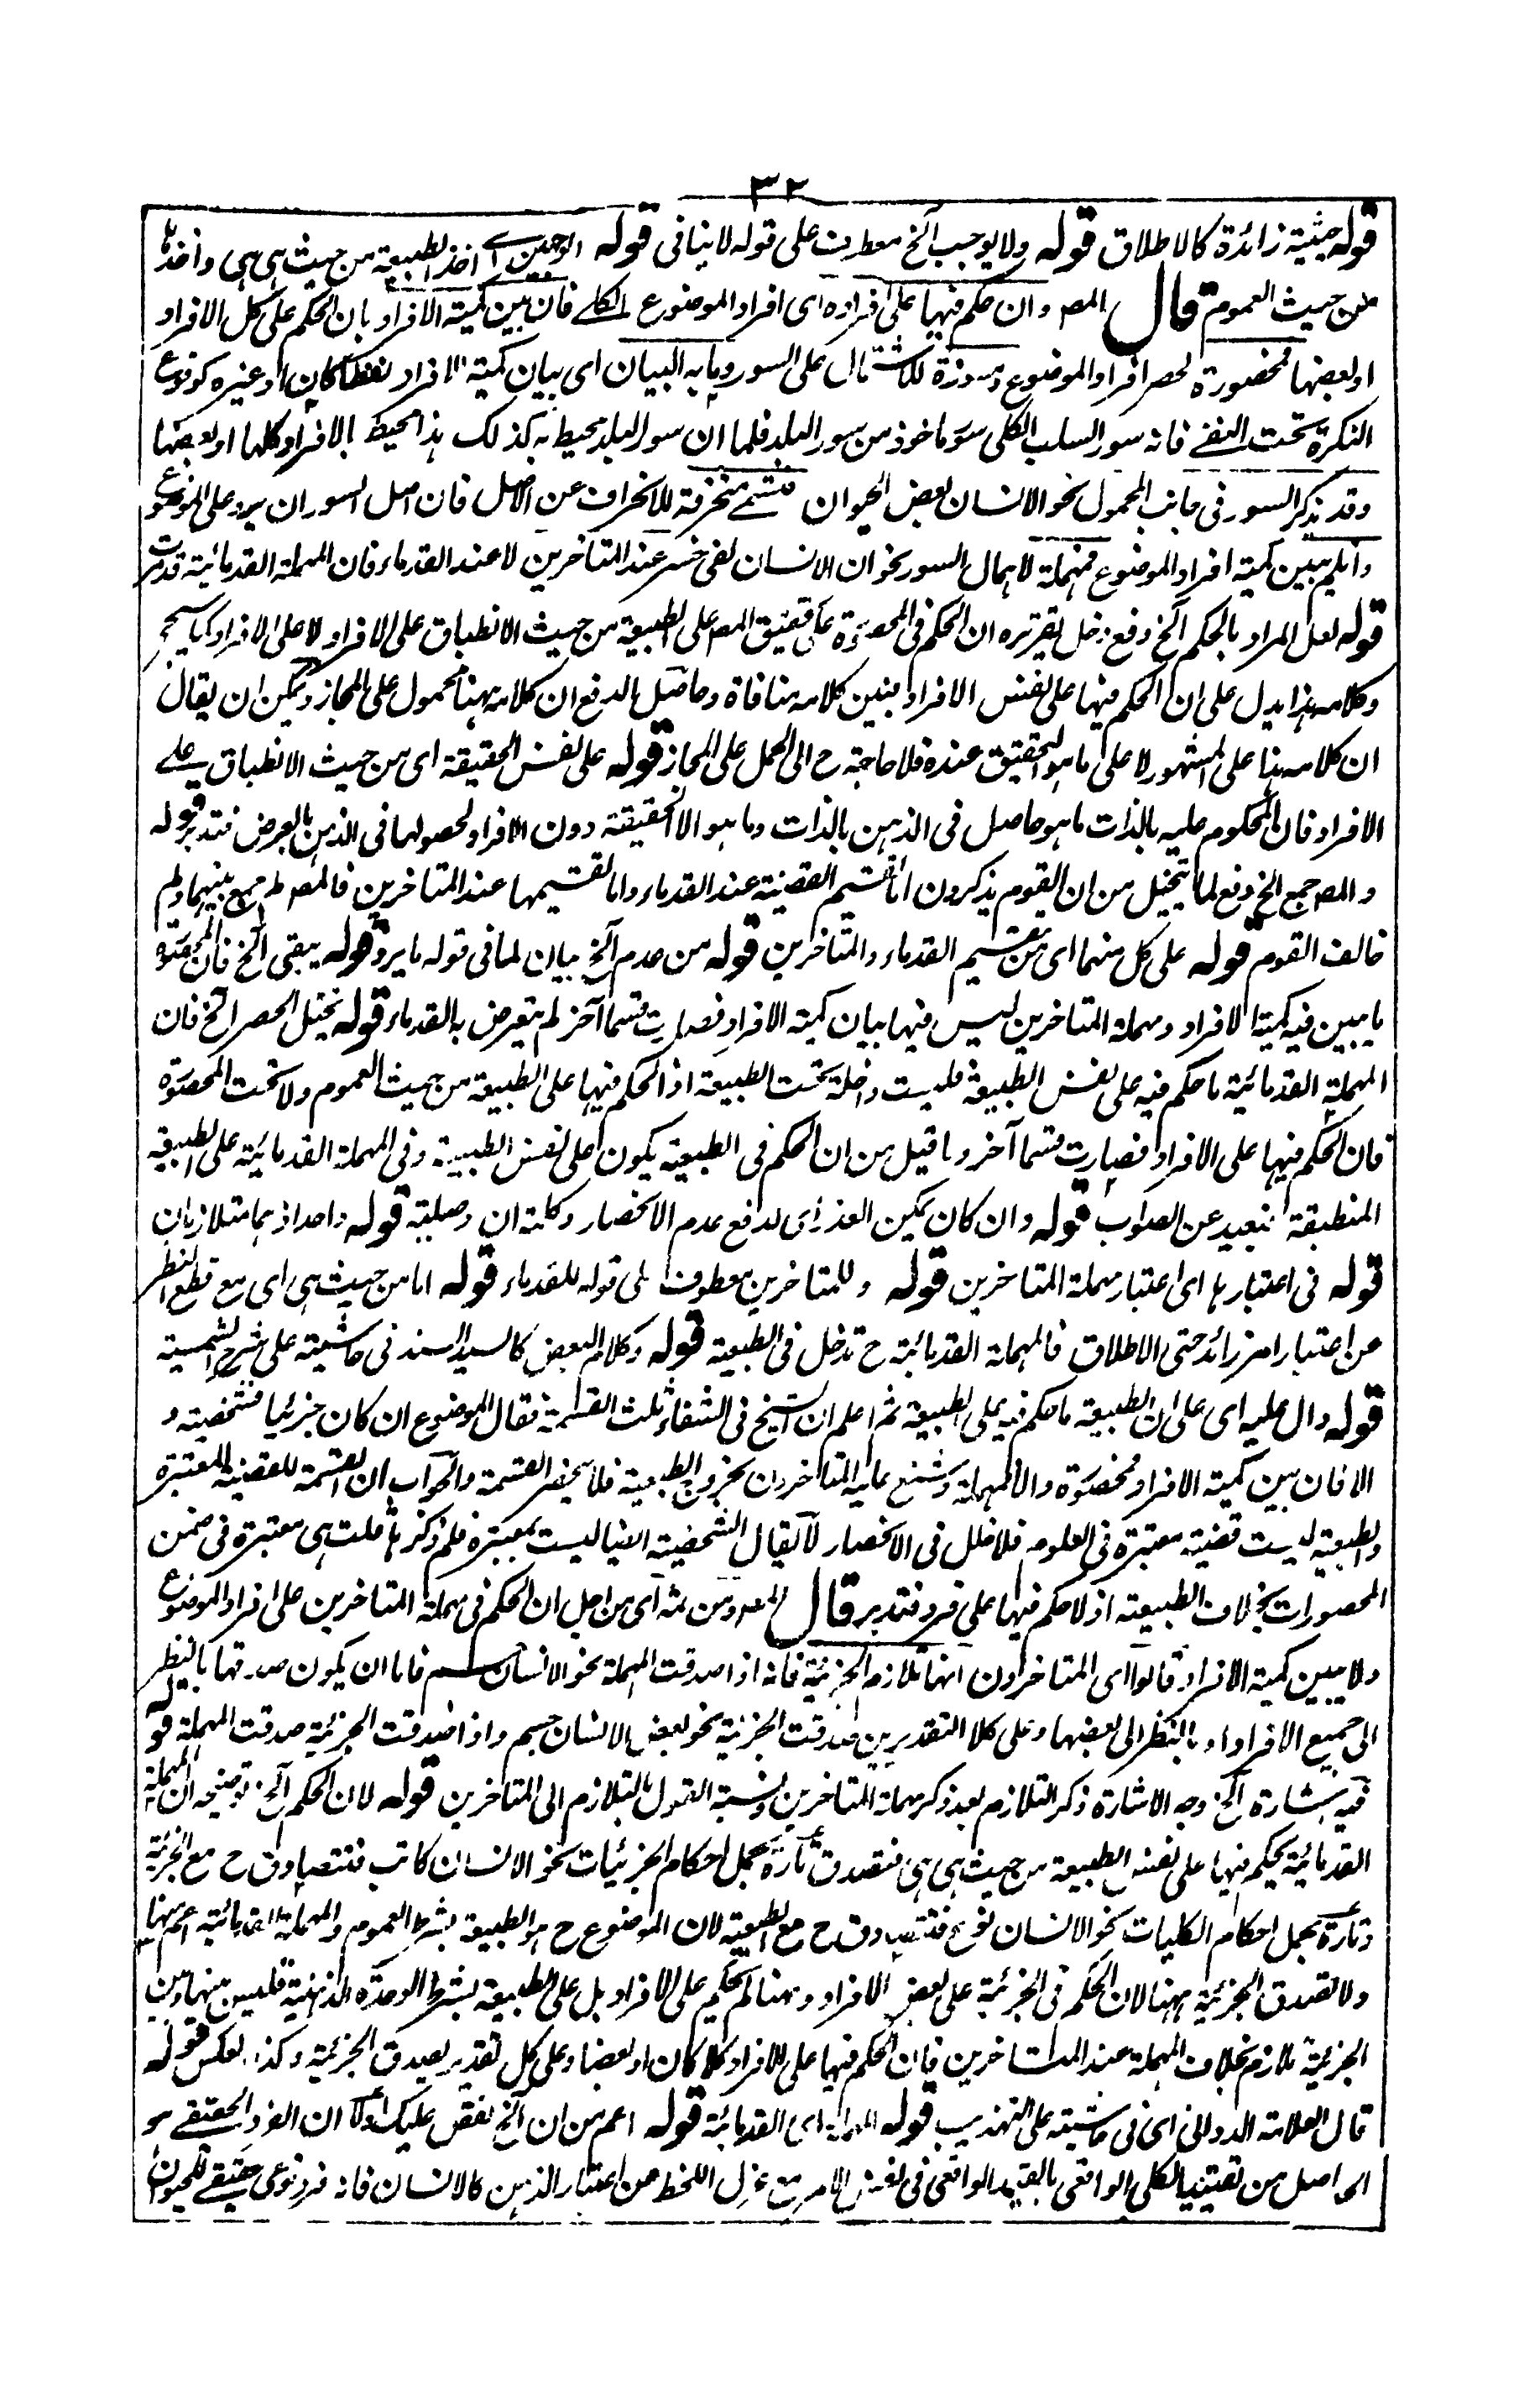 ٣٢
قوله حيثية زائدة كالاطلاق قوله ولا يوجب آلخ معطوف على قوله لاينافى قوله الوجهين اے اخذ الطبيعة من حيث هى هى واخذها
من حيث العموم قال المصـ وان حكم فيها على افراده اى افراد الموضوع الكلے فان بين كمية الافراد بان الحكم على كل الافراد
او بعضها فمحصورة لحصر افراد الموضوع ومسورة للاشتمال على السور وما به البيان اى بيان كمية الافراد لفظا كان او غيره كوقوع
النكرة تحت النفے فانه سور السلب الكلى سورا ماخوذ من سور البلد فلما ان سور البلد محيط به كذلك هذا محيط بالافراد كلها او بعضها
وقد يذكر السور فى جانب المحمول نحو الانسان بعض الحيوان فتسمے منحرفة للانحراف عن الاصل فان اصل السور ان يرد على الموضوع
وان لم يبين كمية افراد الموضوع فمهملة لاهمال السور نحو ان الانسان لفى خسر عند المتاخرين لا عند القدماء فان المهملة القدمائية قد مرت
قوله لعل المراد بالحكم آلخ دفع دخل تقريره ان الحكم فى المحصورة على تحقيق المصـ على الطبيعة من حيث الانطباق على الافراد لا على الافراد كما سيجئ
وكلامه هذا يدل على ان الحكم فيها على نفس الافراد فبين كلاميه منافاة وحاصل الدفع ان كلامه ههنا محمول على المجاز ويمكن ان يقال
ان كلامه هنا على المشهور لا على ما هو التحقيق عنده فلا حاجة ح الى الحمل على المجاز قوله على نفس الحقيقة اى من حيث الانطباق علے
الافراد فان المحكوم عليه بالذات ما هو حاصل فى الذهن بالذات وما هو الا الحقيقة دون الافراد لحصولها فى الذهن بالعرض فتدبر قوله
والمصـ جمع الخ دفع لما يتخيل من ان القوم يذكرون اما تقسيم القضية عند القدماء واما تقسيمها عند المتاخرين فالمصـ لم جمع بينهما ولم
خالف القوم قوله على كل منهما اى من تقسيم القدماء والمتاخرين قوله من عدم آلخ بيان لما فى قوله ما يرد قوله يبقى آلخ فان المحصورة
ما يبين فيه كمية الافراد ومهملة المتاخرين ليس فيها بيان كمية الافراد فصارت قسما آخر لم يتعرض به القدماء قوله يختل الحصر آلخ فان
المهملة القدمائية ما حكم فيه على نفس الطبيعة فليست داخلة تحت الطبيعة اذ الحكم فيها على الطبيعة من حيث العموم ولا تحت المحصورة
فان الحكم فيها على الافراد فصارت قسما آخر وما قيل من ان الحكم فى الطبيعة يكون على نفس الطبيعة وفى المهملة القدمائية على الطبيعة
المنطبقة فبعيد عن الصواب قوله وان كان يمكن العذر اى لدفع عدم الانحصار وكلمة ان وصلية قوله واحدا اذ هما متلازمان
قوله فى اعتبارها اى اعتبار مهملة المتاخرين قوله وللمتاخرين معطوف على قوله للقدماء قوله اما من حيث هى اى مع قطع النظر
عن اعتبار امر زائد حتى الاطلاق فالمهملة القدمائية ح تدخل فى الطبيعة قوله وكلام البعض كالسيد السند فى حاشيته على شرح الشمسية
قوله دال عليه اى على ان الطبيعة ما حكم فيه على الطبيعة ثم اعلم ان الشيخ فى الشفاء ثلث القسمة فقال الموضوع ان كان جزئيا فشخصية و
الا فان بين كمية الافراد فمحصورة والا فمهملة وشنع عليه المتاخرون بخروج الطبعية فلا ينحصر القسمة والجواب ان القسمة للقضية المعتبرة
والطبعية ليست قضية معتبرة فى العلوم فلا خلل فى الانحصار لا يقال الشخصية ايضا ليست بمعتبرة فلم ذكرها قلت هى معتبرة فى ضمن
المحصورات بخلاف الطبيعة اذ لا حكم فيها على فرد فتدبر قال المصـ ومن ثمه اى من اجل ان الحكم فى مهملة المتاخرين على افراد الموضوع
ولا يبين كمية الافراد قالوا اى المتاخرون انها تلازم الجزئية فانه اذا صدقت المهملة نحو الانسان جسم فاما ان يكون صدقها بالنظر
الى جميع الافراد او بالنظر الى بعضها وعلى كلا التقديرين صدقت الجزئية نحو بعض الانسان جسم واذا صدقت الجزئية صدقت المهملة قوله
فيه اشارة آلخ وجه الاشارة ذكر التلازم بعد ذكر مهملة المتاخرين ونسبة القول بالتلازم الى المتاخرين قوله لان الحكم آلخ توضيحه ان المهملة
القدمائية يحكم فيها على نفس الطبيعة من حيث هى هى فتصدق تارة بحمل احكام الجزئيات نحو الانسان كاتب فتتصادق ح مع الجزئية
وتارة بحمل احكام الكليات نحو الانسان نوع فتتصادق ح مع الطبعية لان الموضوع ح هو الطبيعة بشرط العموم والمهملة القدمائية اعم منها
ولا تصدق الجزئية ههنا لان الحكم فى الجزئية على بعض الافراد وههنا لم يحكم على الافراد بل على الطبيعة بشرط الوحدة الذهنية فليس بينها وبين
الجزئية تلازم بخلاف المهملة عند المتاخرين فان الحكم فيها على الافراد كلا كان او بعضا وعلى كل تقدير يصدق الجزئية وكذا بالعكس قوله
قال العلامة الدوانى اى فى حاشيته على التهذيب قوله المهملة اى القدمائية قوله اعم من ان آلخ نقض عليك اولا ان الفرد الحقيقے هو
الحاصل من تقييد الكلى الواقعى بالقيد الواقعى فى نفس الامر مع عزل اللحظ عن اعتبار الذهن كالانسان فانه فرد نوعى حقيقے للحيوان